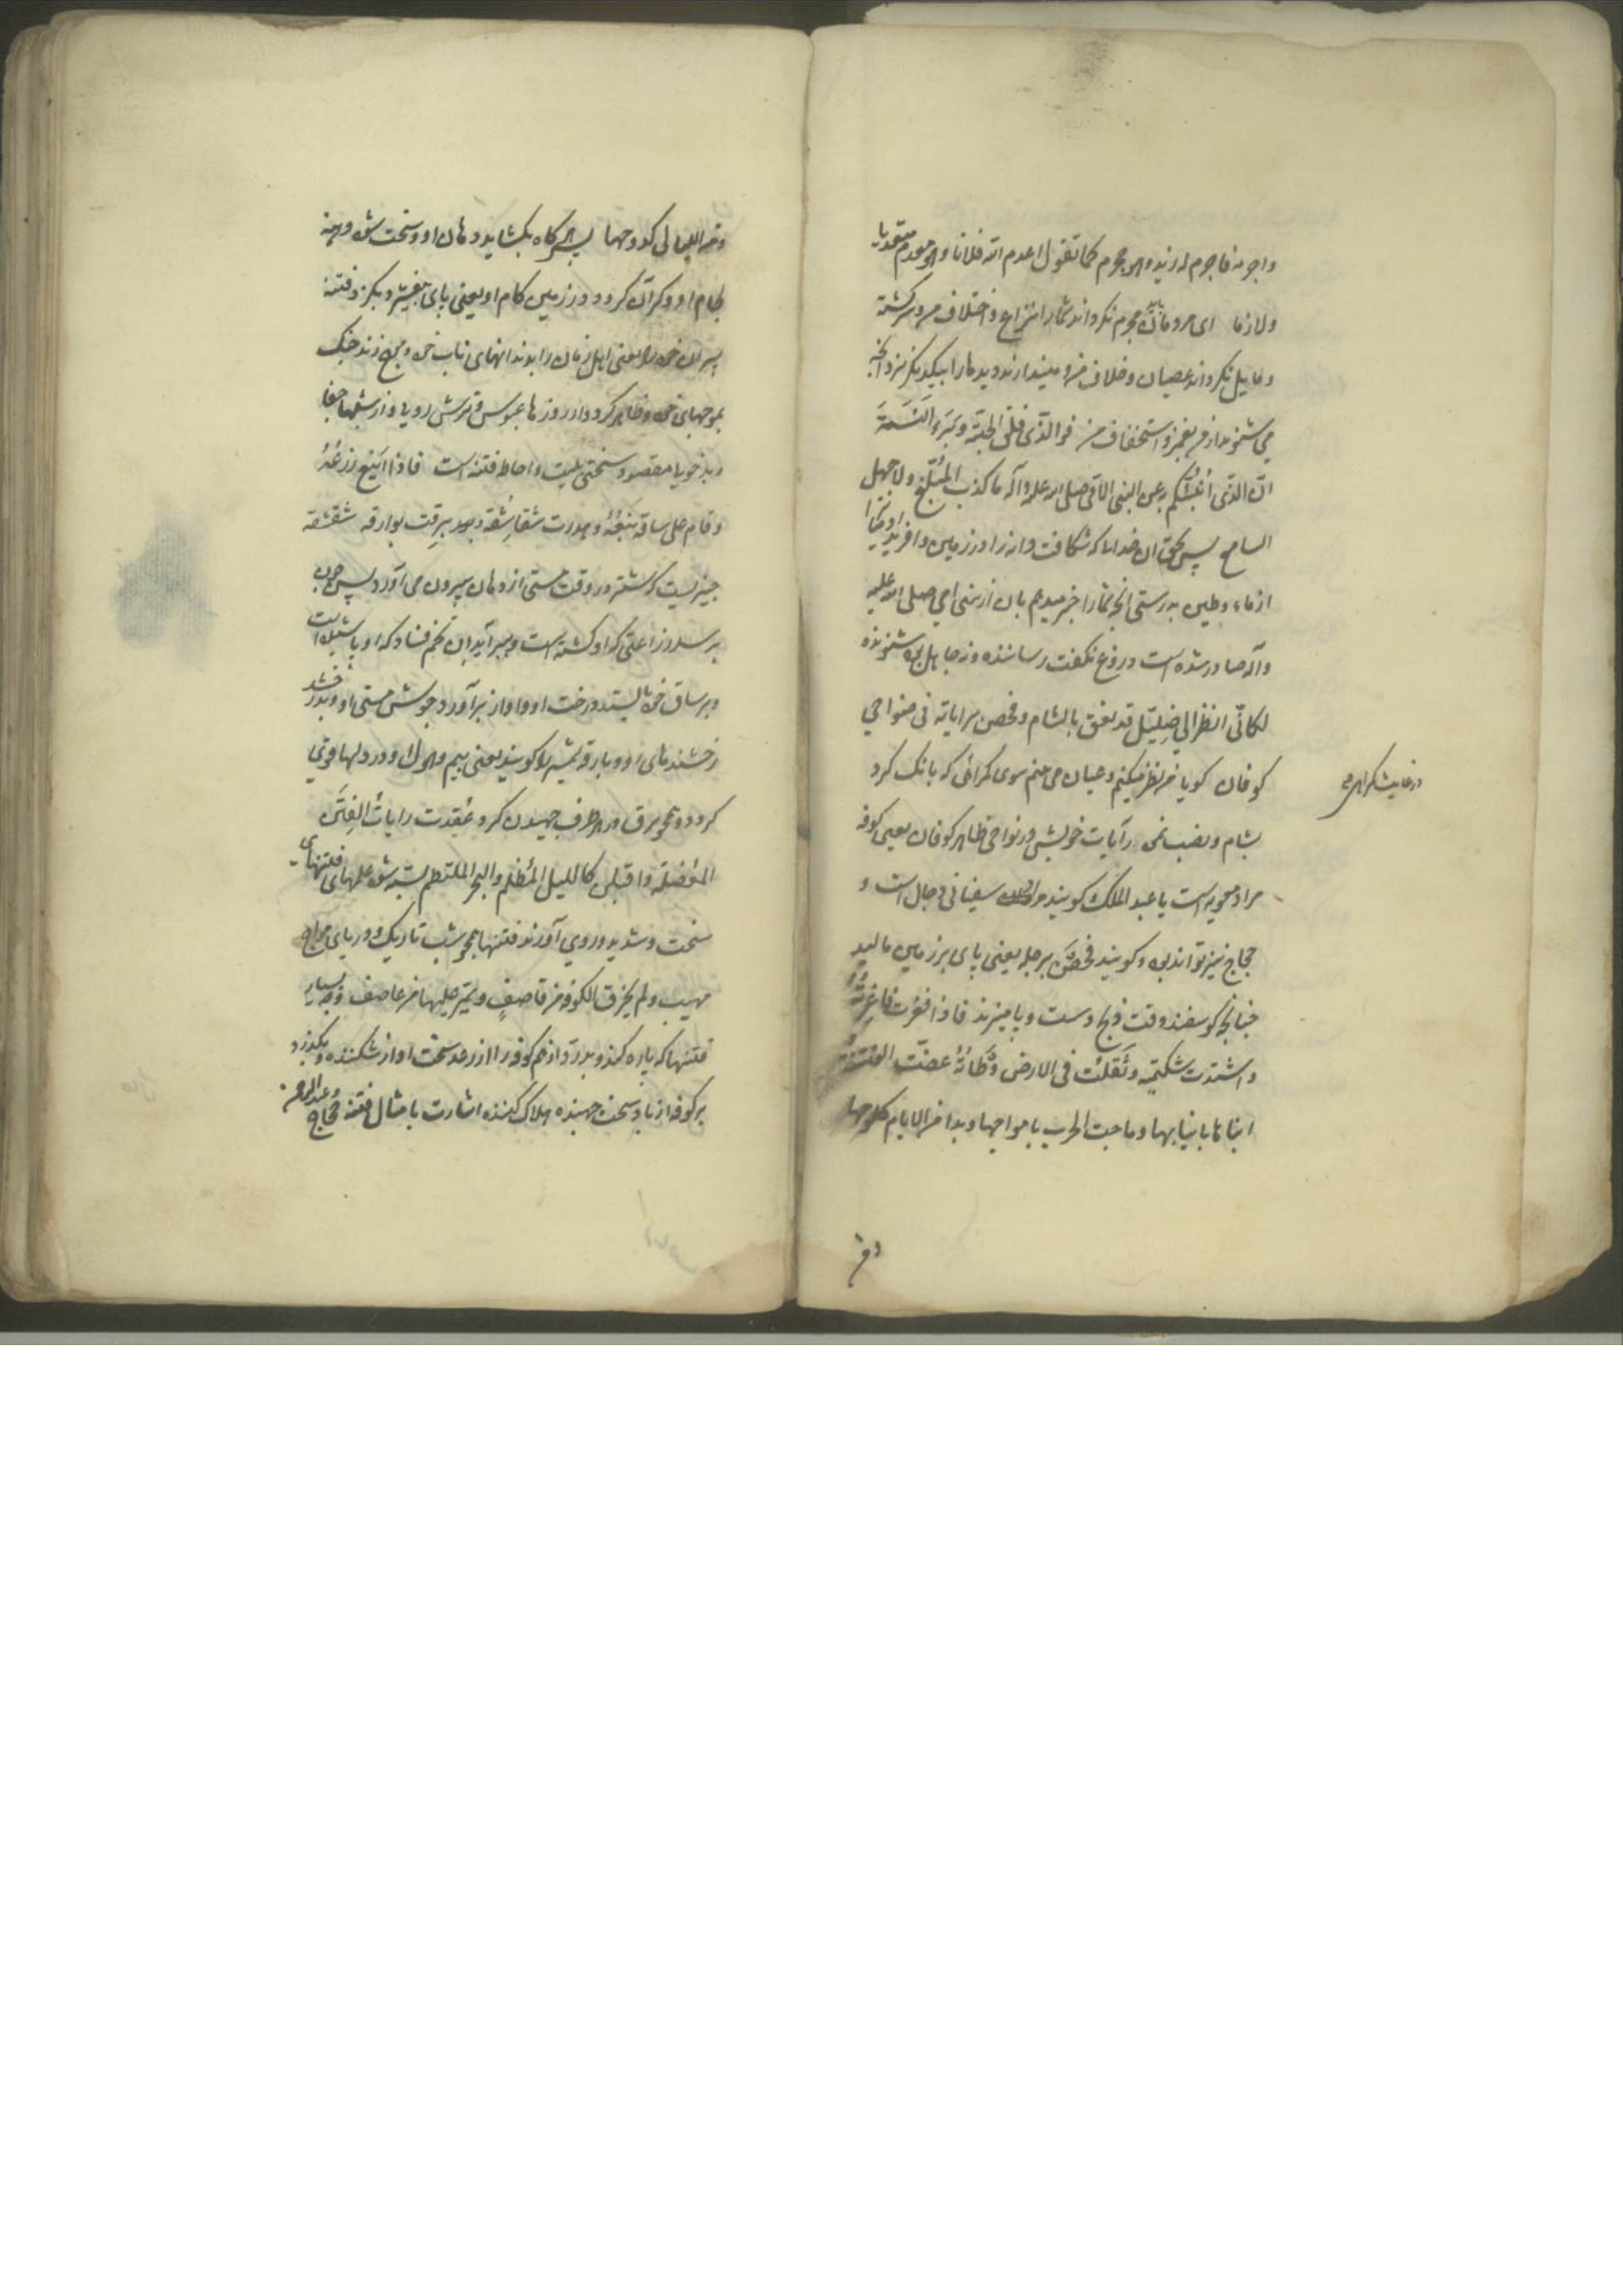 واجرمه فاجرم له زیدو هو مجرم کما تقول اعدم الله فلانا وهو معدم متعدیا
ولازما ای مردمان مجرم نگرداند شما را نزاع و اختلاف من و سرگشته
ومایل نگرداند عصیان و خلاف من و میندازند دیدها را بیکدیگر نزد آنچه
می شنوید از من بغمز و استخفاف من فوالذی فلق الحبة وبرء النسمة
ان الذی انبئکم به عن النبی الامی صلی الله علیه وآله ما کذب المبلغ ولا جهل
السامع پس بحق ان خدای که شکافت دانه را در زمین و آفرید
از ماء وطین بدرستی آنچه شما را خبر میدهم بان از نبی امی صلی الله علیه
وآله صادر شده است دروغ نگفت رساننده و نه جاهل بود شنونده
لکانی انظر الی ضلیل قد نعق بالشام و فحص برایاته فی ضواحی
کوفان گویا من نظر میکنم و عیان می بینم سوی گمراهی که بانک کرد
در غایت گمراهی
بشام و نصب نمود رآیات خویش در نواحی ظاهر کوفان یعنی کوفه
مراد معویه است یا عبد الملک گویند مراد سفیانی دجال است و
حجاج نیز تواند بود و گویند فحص برجله یعنی پای بر زمین مالید
چنانچه گوسفند وقت ذبح دست و پا میزند فاذا فغرت فاغرته
واشتدت شکیمته وثقلت فی الارض وطاته عضت الفتنة
ابناءها بانیابها وماجت الحرب بامواجها وبدا من الایام کلوحها
ومن
ومن اللیالی کدوحها پس هرگاه بگشاید دهان او و سخت شود دهنه
لجام او و گران گردد در زمین گام او یعنی پای بیفشرد بگزد فتنه
پسران خود را یعنی اهل زمان را بدندانهای ناب خود و موج زند جنگ
بموجهای خود و ظاهر گردد از روزها عبوس و ترش رویها و از شبها جفا
وبدخویها مقصود سختی بلیت و احاطه فتنه است فاذا اینع زرعه
وقام علی ساقه ینعه وهدرت شقاشقه وبرقت بوارقه شقشقه
چیزیست که شتر در وقت مستی از دهان بیرون می آورد پس چون
برسد زراعتی که او کشته است و ببر آید ان تخم فساد که او پاشیده است
وبر ساق خود بایستد درخت او و اواز برآورد جوشش مستی او و بدرخشد
رخشندهای او و بارقه شمشیر را گویند یعنی بیم و هول او در دلها قوی
گردد و همچو برق در هر طرف جهیدن گیرد عقدت رایات الفتن
المعضلة واقبلن کاللیل المظلم والبحر الملتطم بسته شود علمهای فتنهای
سخت و شدید و روی آورند فتنها همچو شب تاریک و دریای مواج
مهیب ولم یخرق الکوفة من قاصف ویمر علیها من عاصف وچه بسیار
فتنها که پاره کند و بدرد از هم کوفه را از رعد سخت اواز شکننده و بگذرد
بر کوفه از باد سخت جهنده هلاک کننده اشارت بامثال فتنه حجاج